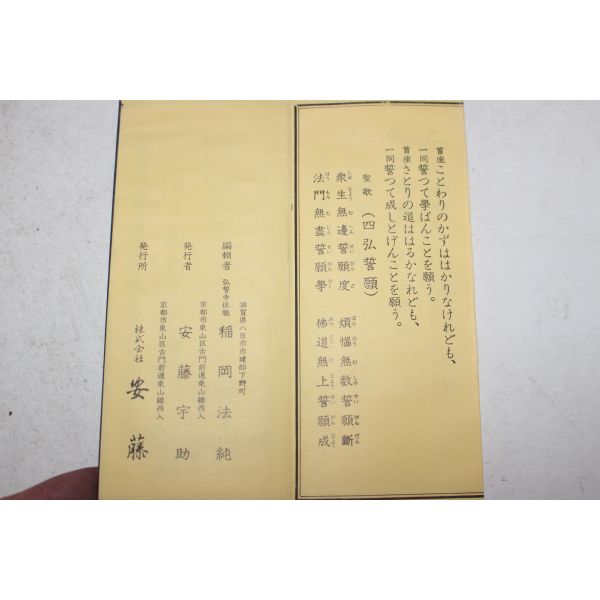 首座 ことわりのかずははかりなけれども、
一同 誓つて學ばんことを願う。
首座 さとりの道ははるかなれども、
一同 誓つて成しとげんことを願う。
聖歌 (四弘誓願)
衆生無邊誓願度 煩惱無数誓願斷
法門無盡誓願學 佛道無上誓願成
滋賀県八日市市建部下野町
編輯者 弘誓寺住職 稲岡法純
京都市東山区古門前通東山線西入
発行者 安藤宇助
京都市東山区古門前通東山線西入
発行所 株式会社 安藤